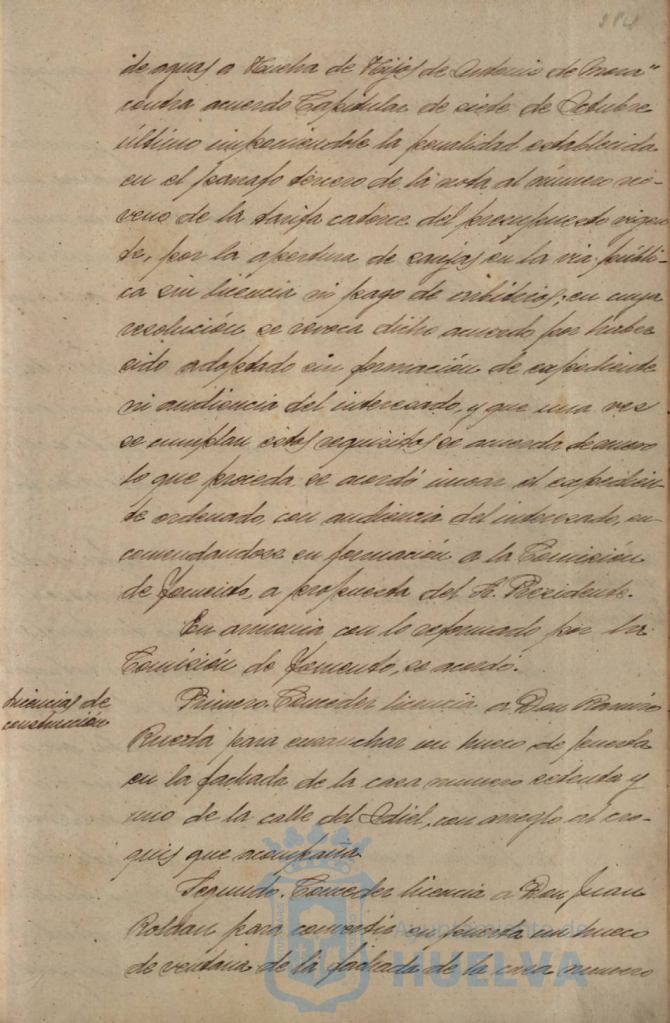 de aguas a Huelva de Hijos de Antonio de Mora"
contra acuerdo Capitular de siete de Octubre
último imponiéndole la penalidad establecida
en el párrafo tercero de la nota al número no-
veno de la tarifa catorce del presupuesto vigen
te, por la apertura de zanjas en la via públi-
ca sin licencia ni pago de arbitrios; en cuya
resolución se revoca dicho acuerdo por haber
sido adoptado sin formación de expediente
ni audiencia del interesado, y que una vez
se cumplan estos requisitos se acuerda de nuevo
lo que proceda se acordó incoar el expedien-
te ordenado, con audiencia del interesado, en-
comendandose su formación a la Comisión
de Fomento, a propuesta del Sr. Presidente.
En armonia con lo informado por la
Comisión de Fomento, se acordó.
Licencias de
construcción
Primero. Conceder licencia a Don Ramiro
Ruerta para ensanchar un hueco de puerta
en la fachada de la casa numero setenta y
uno de la calle del Odiel, con arreglo al cro-
quis que acompaña.
Segundo. Conceder licencia a Don Juan
Roldan para convertir en puerta un hueco
de ventana de la fachada de la casa numero
Ayuntamiento de
HUELVA